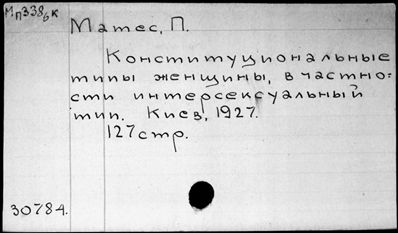 Мп338бк
Матес, П.
Конституциональные
типы женщины, в частно-
сти интерсексуальный
тип. Киев, 1927.
127 стр.
30784.